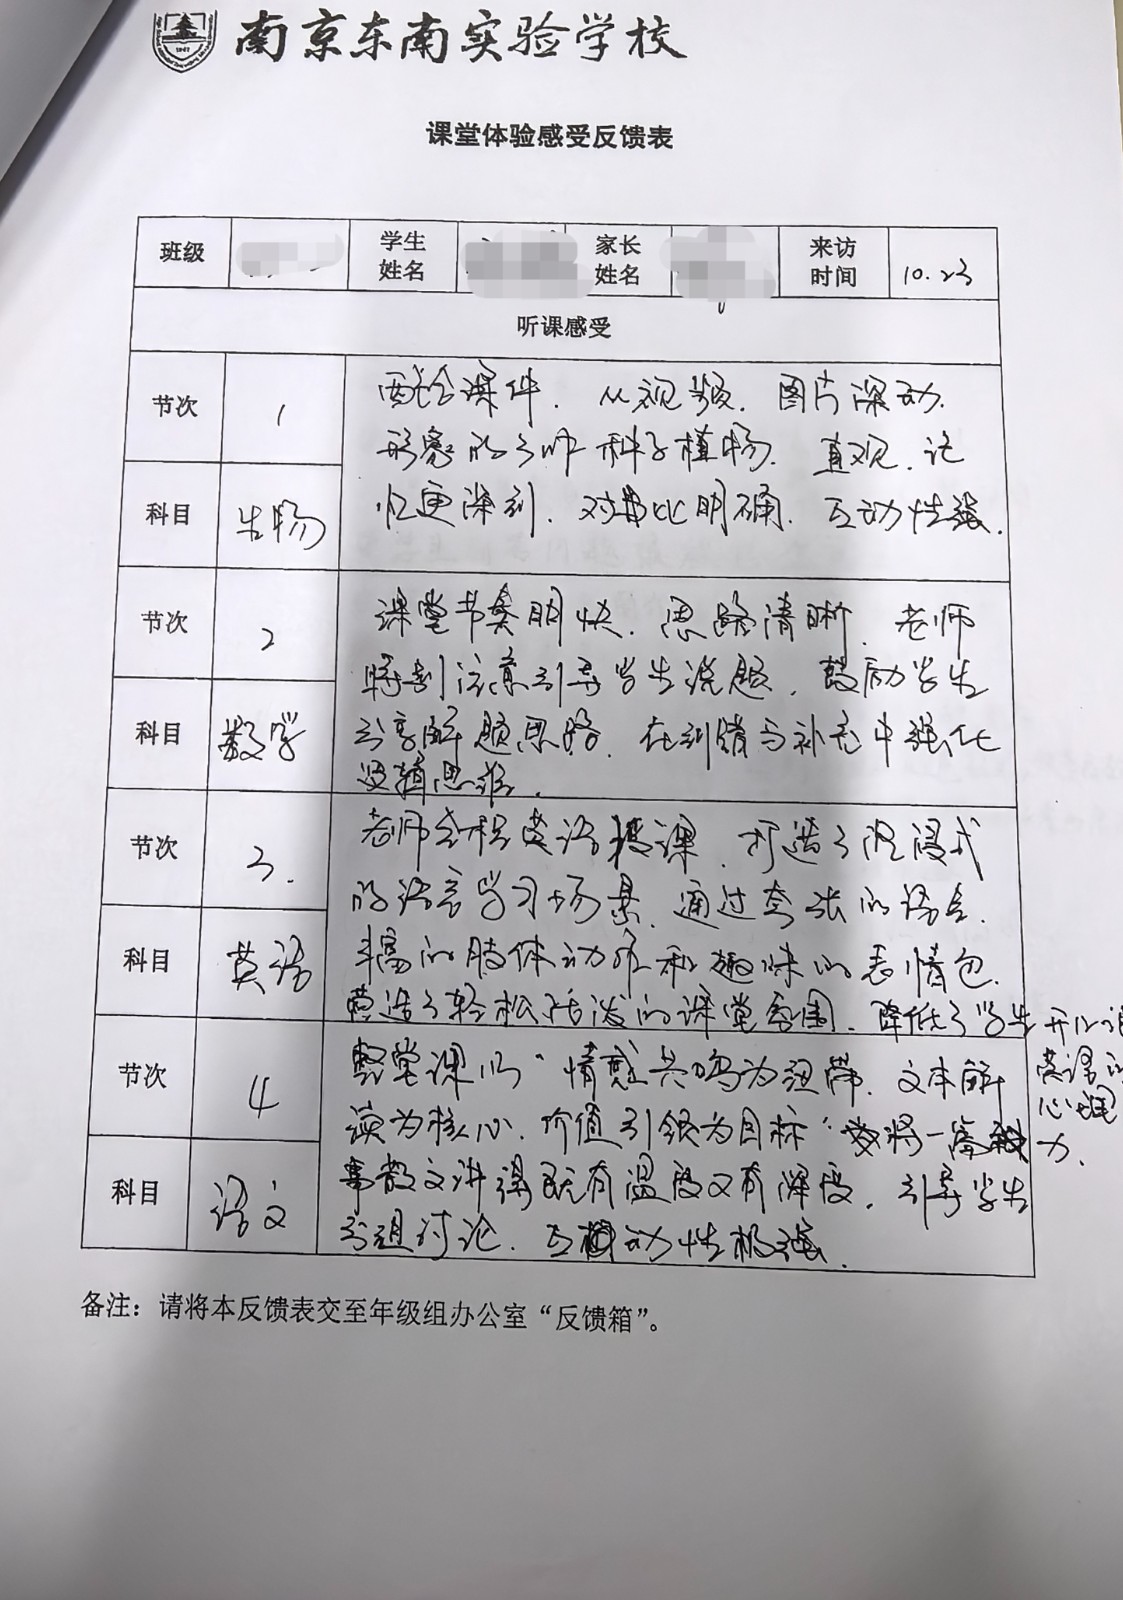 南京东南实验学校
课堂体验感受反馈表
班级 学生姓名 家长姓名 来访时间 10.23
听课感受
节次 1
科目 生物
配合课件.从视频.图片深动.
形象的了解种子植物.直观.记
忆更深刻.对比明确.互动性强.
节次 2
科目 数学
课堂节奏明快.思路清晰.老师
特别注意引导学生说题,鼓励学生
分享解题思路.在纠错与补充中强化
逻辑思维.
节次 3.
科目 英语
老师全程英语授课.打造了沉浸式
的语言学习场景.通过夸张的语言.
丰富的肢体动作和趣味的表情包.
营造了轻松活泼的课堂氛围.降低了学生开口说
英语的
心理
力.
节次 4
科目 语文
整堂课以“情感共鸣为纽带.文本解
读为核心.价值引领为目标”将一篇
散文讲得既有温度又有深度.引导学生
分组讨论.互动性极强.
备注：请将本反馈表交至年级组办公室“反馈箱”。